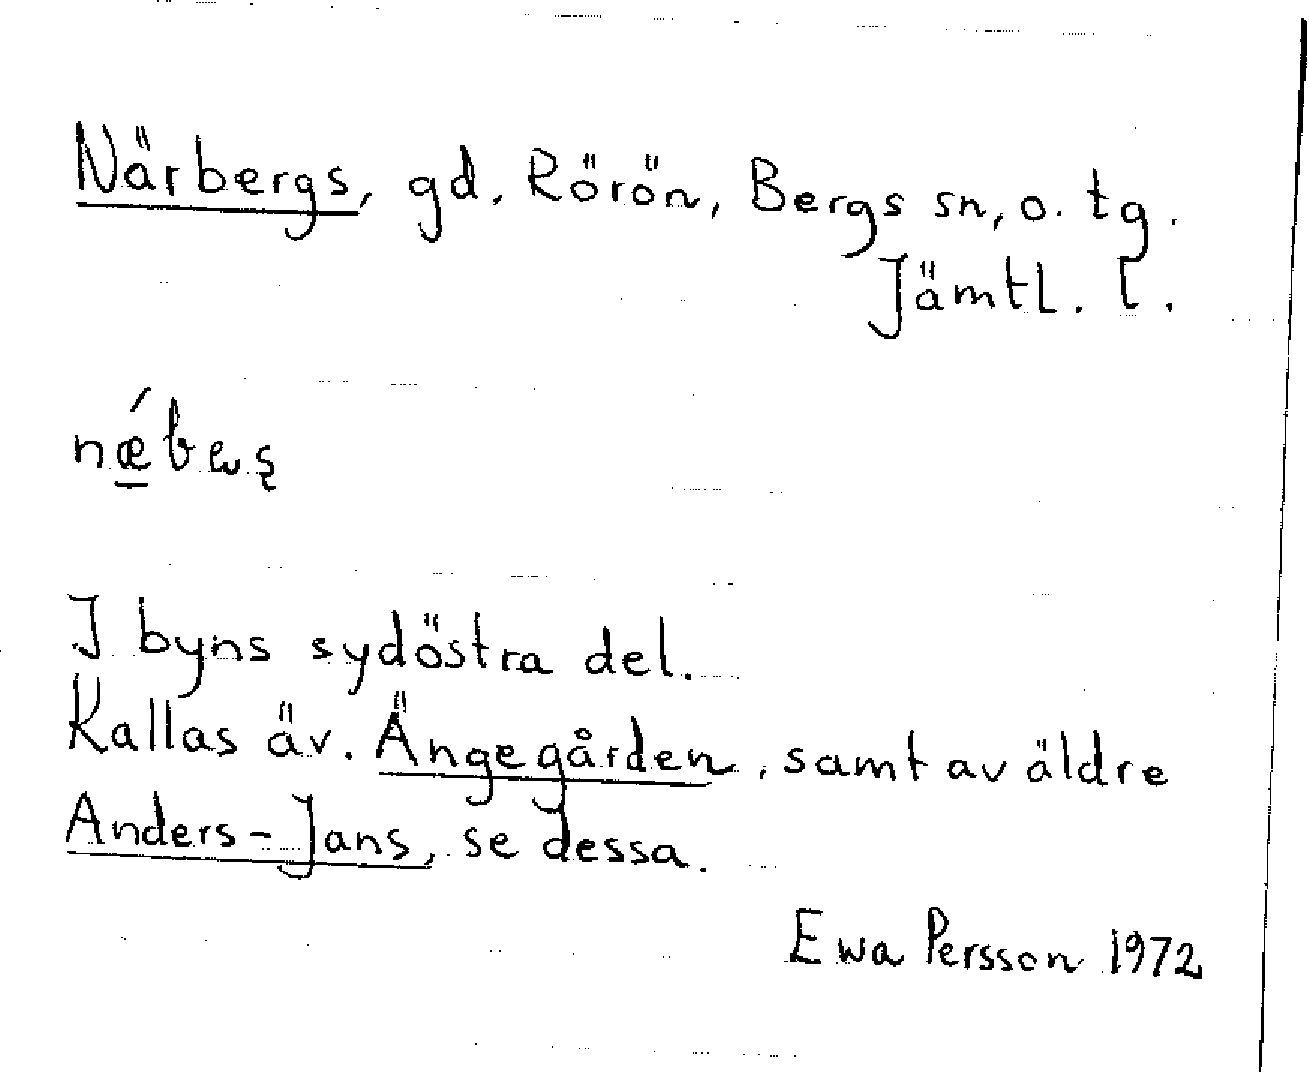 Närbergs, gd. Rörön, Bergs sn, o. tg.
Jämtl. l.
I byns sydöstra del.
Kallas äv. Ängegården, samt av äldre
Anders-Jans, se dessa.
Ewa Persson 1972